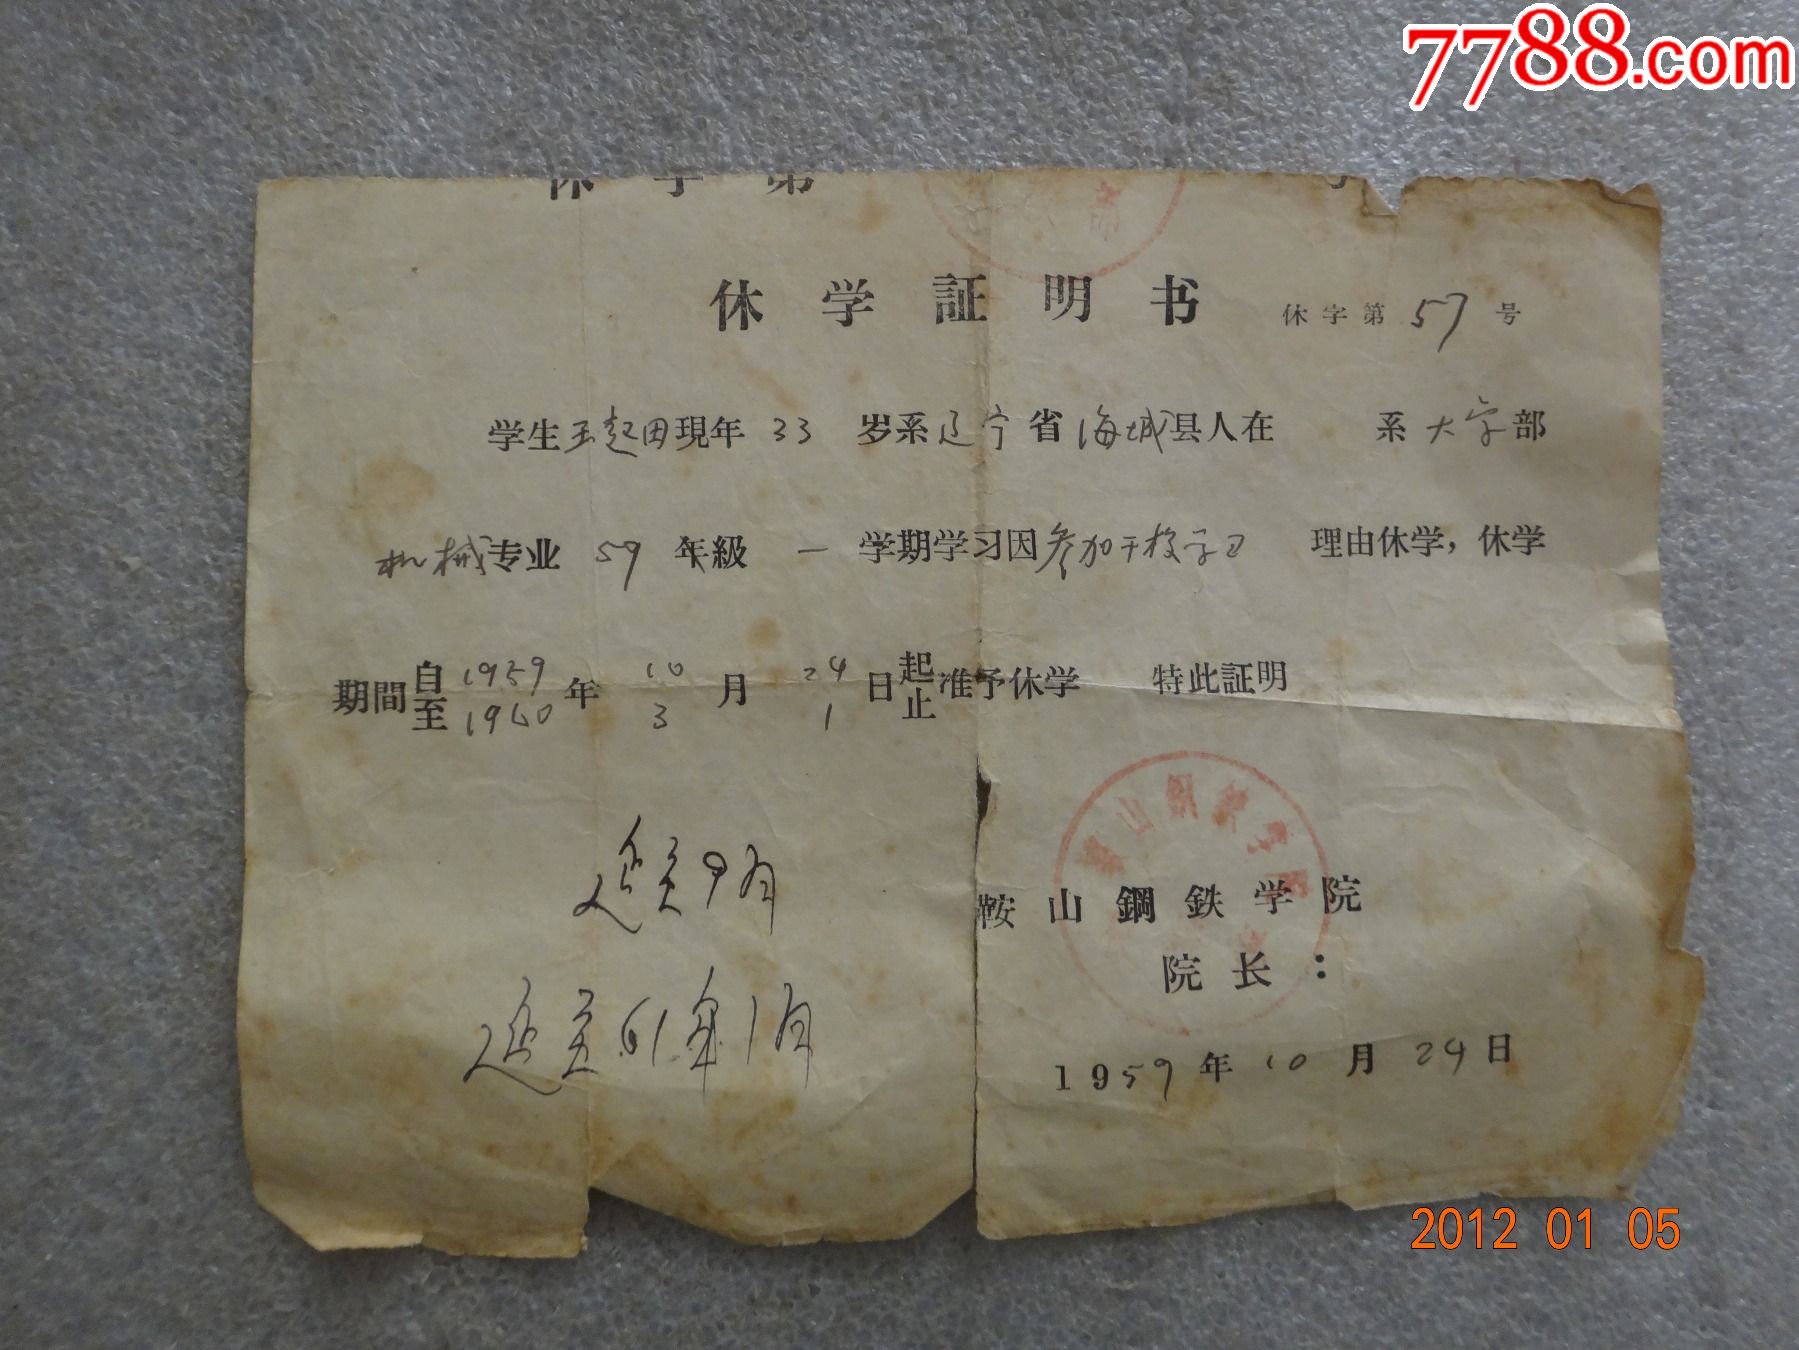 7788.com
休字第 号
休学証明书 休字第57号
学生王起田現年33岁系辽宁省海城县人在 系大学部
机械专业59年級一学期学习因参加干校学习理由休学，休学
期間自1959年10月24日起准予休学 特此証明
至1960 3 1止
延至9月
延至61年1月
鞍山鋼鉄学院
院长：
1959年10月24日
2012 01 05